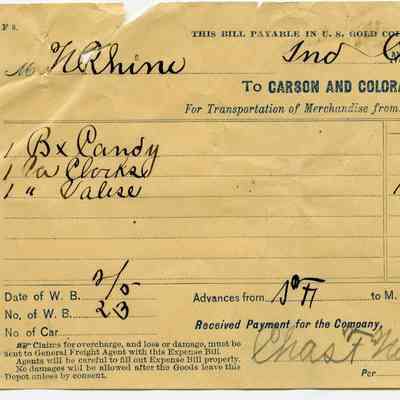 F 8.
THIS BILL PAYABLE IN U. S. GOLD CO
M N Rhine Ind
To CARSON AND COLORA
For Transportation of Merchandise from
1 Bx Candy
1 Ca Clocks
1 " Valise
Date of W. B. 2/5
No. of W. B. 23
No. of Car
Advances from to M.
Received Payment for the Company,
Claims for overcharge, and loss or damage, must be
sent to General Freight Agent with this Expense Bill.
Agents will be careful to fill out Expense Bill properly.
No damages will be allowed after the Goods leave this
Depot unless by consent.
Chas F
Per